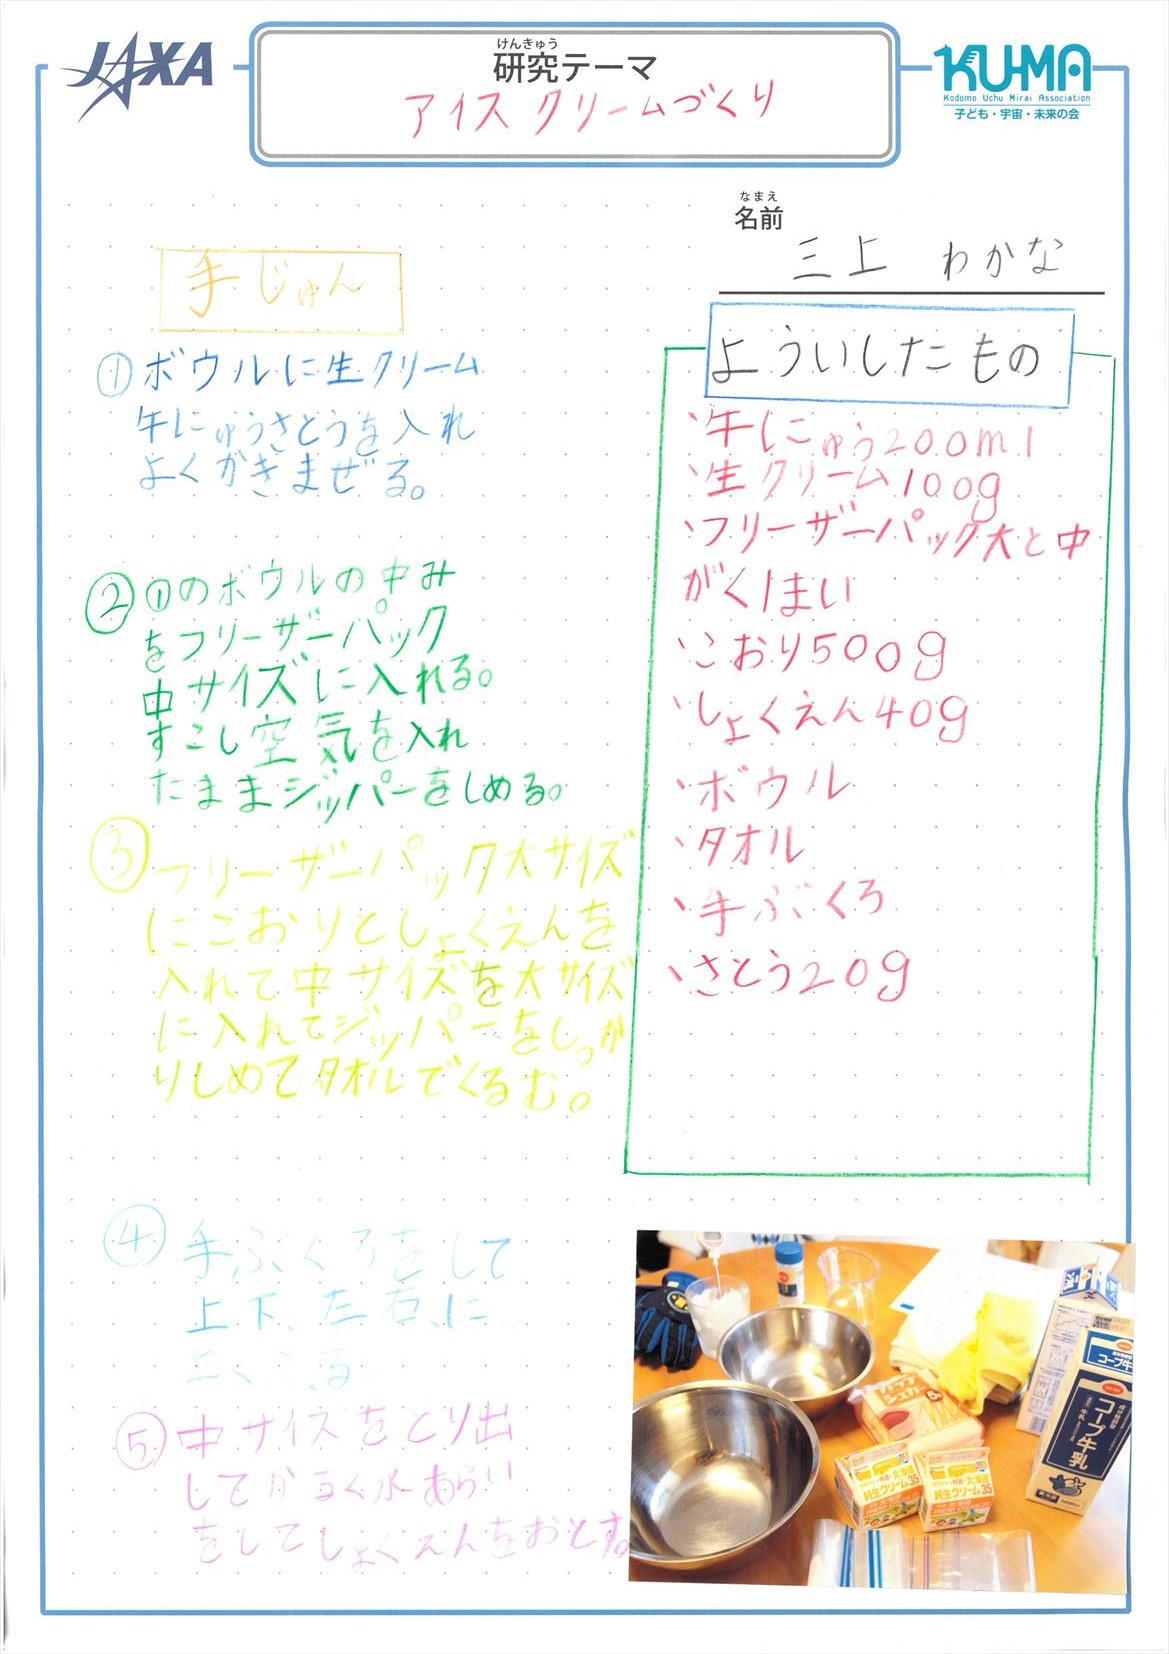 JAXA
けんきゅう
研究テーマ
アイスクリームづくり
KU-MA
Kodomo Uchu Mirai Association
子ども・宇宙・未来の会
なまえ
名前
三上 わかな
手じゅん
①ボウルに生クリーム
牛にゅうさとうを入れ
よくかきまぜる。
②①のボウルの中み
をフリーザーパック
中サイズに入れる。
すこし空気を入れ
たままジッパーをしめる。
③フリーザーパック大サイズ
にこおりとしょくえんを
入れて中サイズを大サイズ
に入れてジッパーをしっか
りしめてタオルでくるむ。
④手ぶくろをして
上下、左右、に
よくふる。
⑤中サイズをとり出
してかるく水あらい
をしてしょくえんをおとす。
よういしたもの
・牛にゅう200ml
・生クリーム100g
・フリーザーパック大と中
がく1まい
・こおり500g
・しょくえん40g
・ボウル
・タオル
・手ぶくろ
・さとう20g
コープ牛乳
純生クリーム35
純生クリーム35